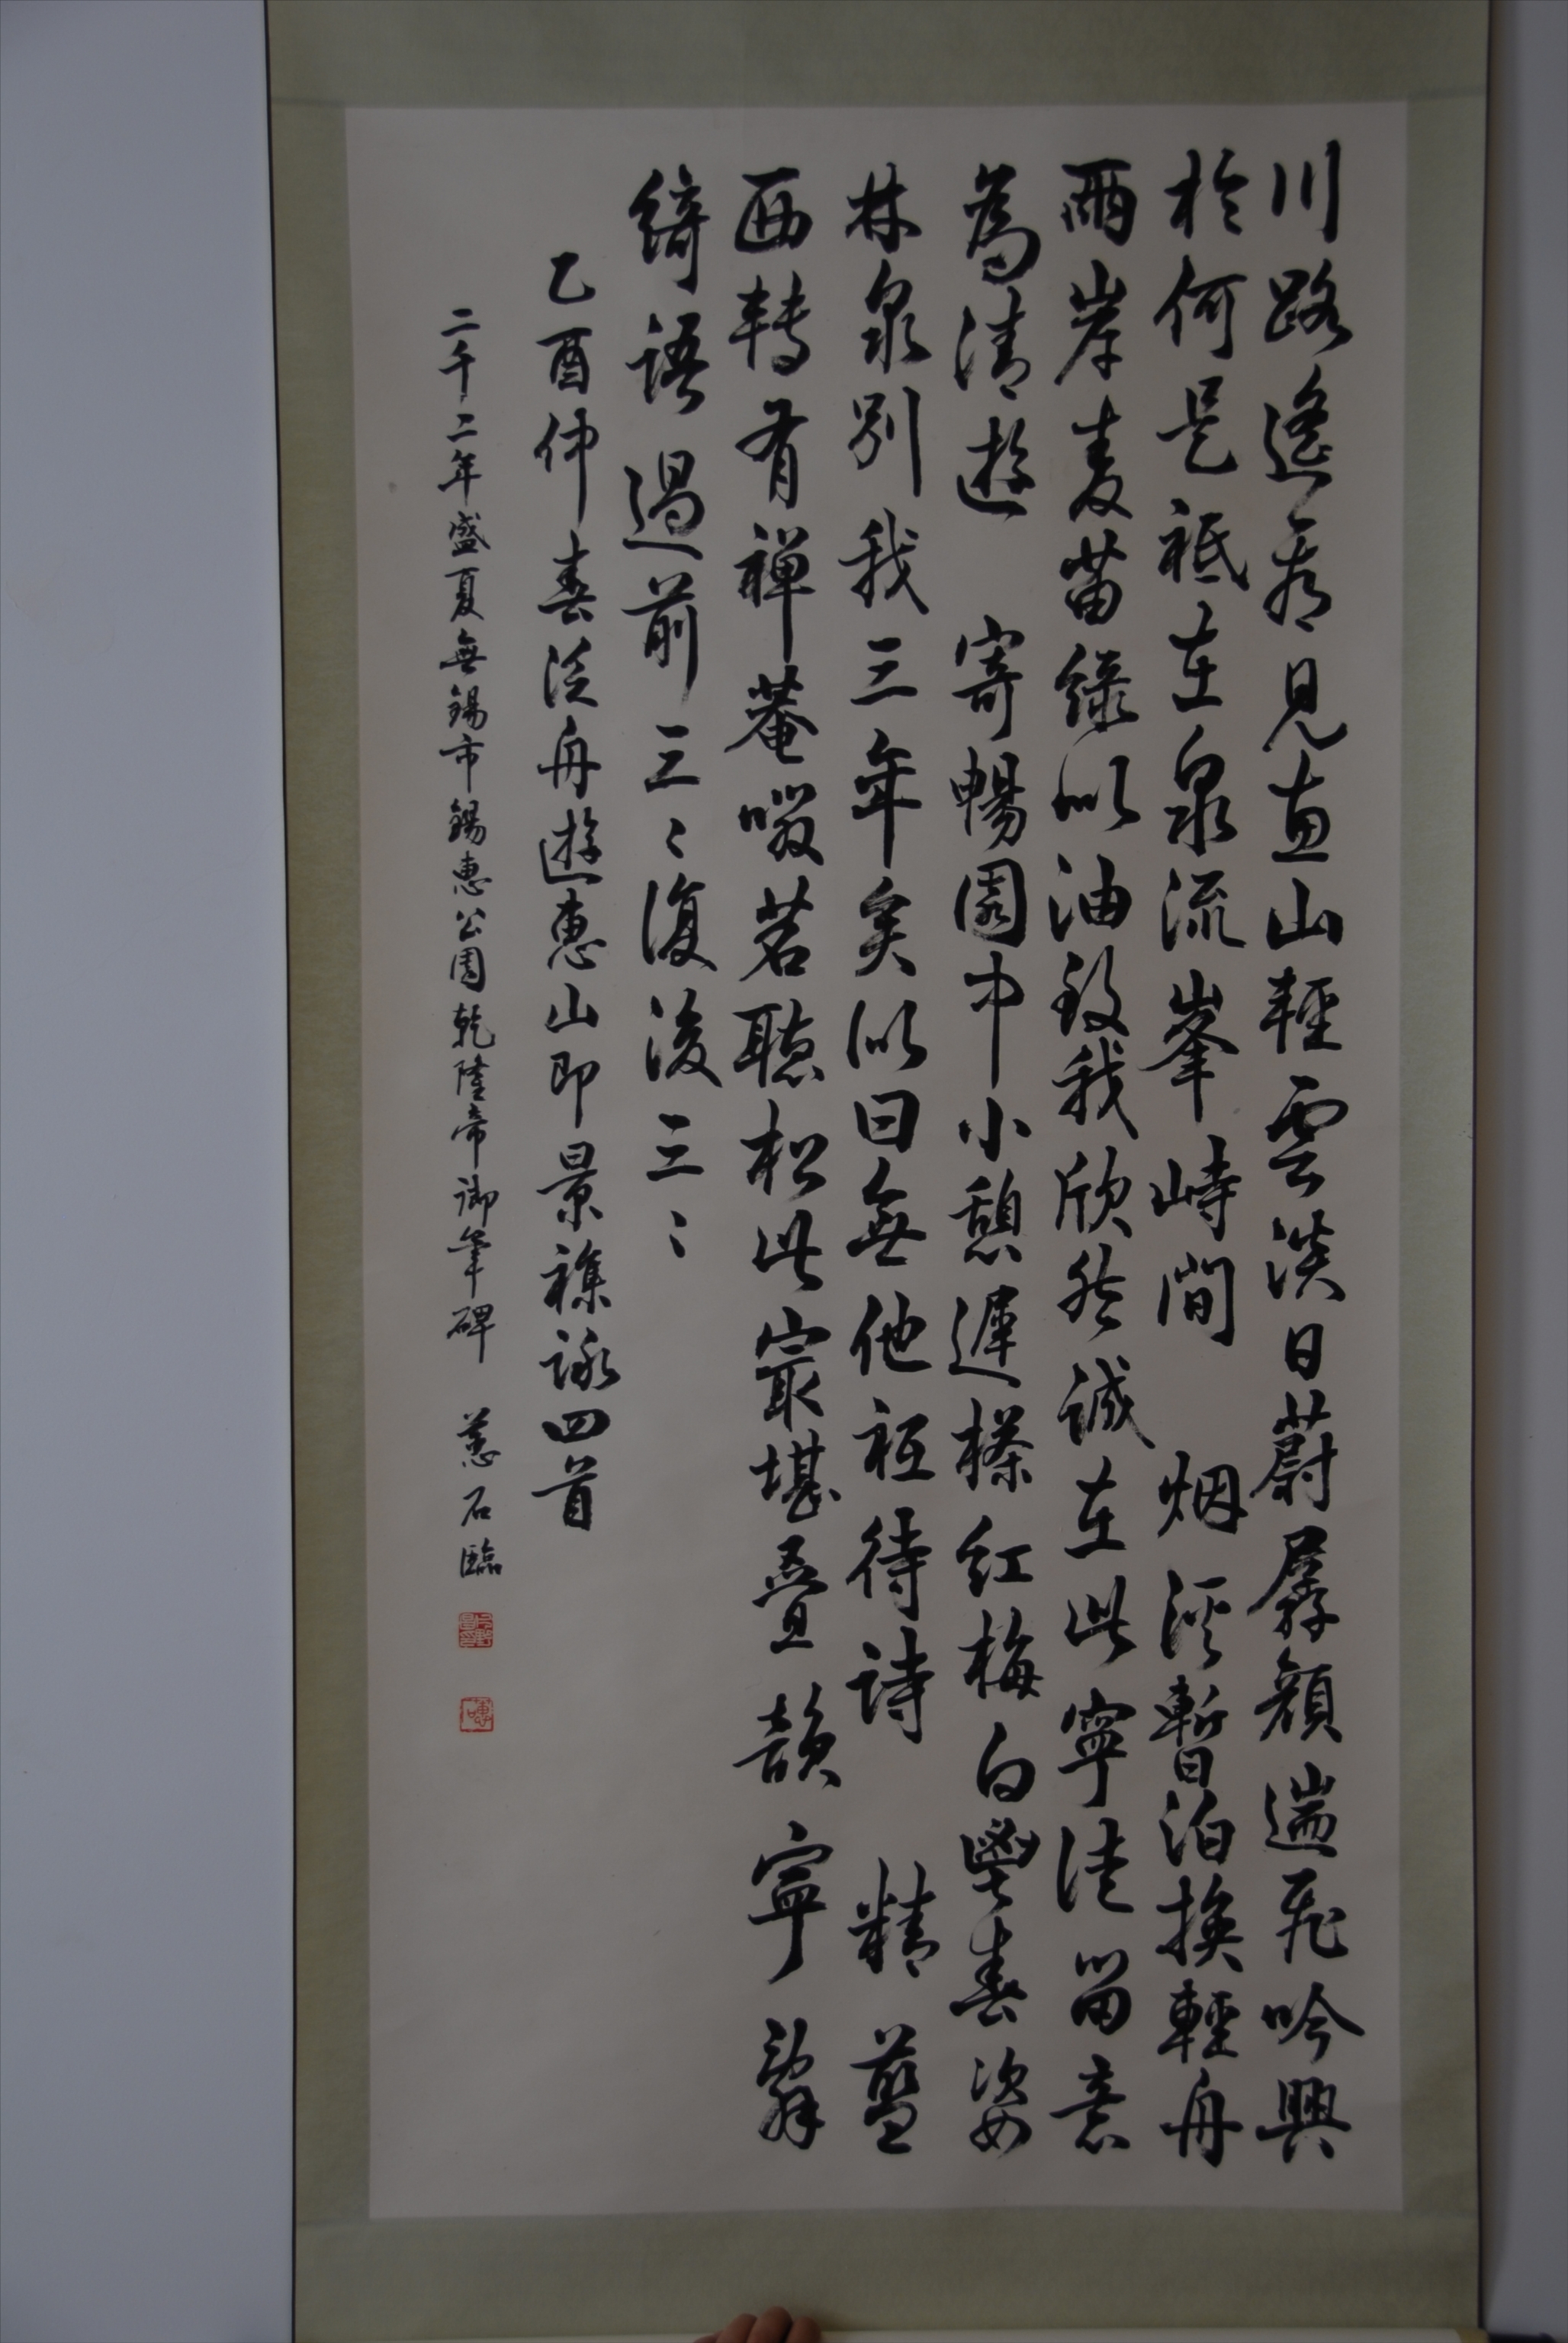 川路遙看見惠山輕雲淡日蔚孱顏遄飛吟興
於何是祗在泉流峯峙間 烟溪暫泊換輕舟
兩岸麦苗緑似油致我欣然誠在此寧徒留意
為清遊 寄暢園中小憩遲榛紅梅白鬯春姿
林泉別我三年矣似曰無他祗待詩 精藍
西轉有禅菴啜茗聴松此宲堪叠韻寧辤
綺語過前三〻復後三〻
乙酉仲春泛舟遊惠山即景襍詠四首
二千二年盛夏無錫市錫惠公園乾隆帝御筆碑 蕙石臨